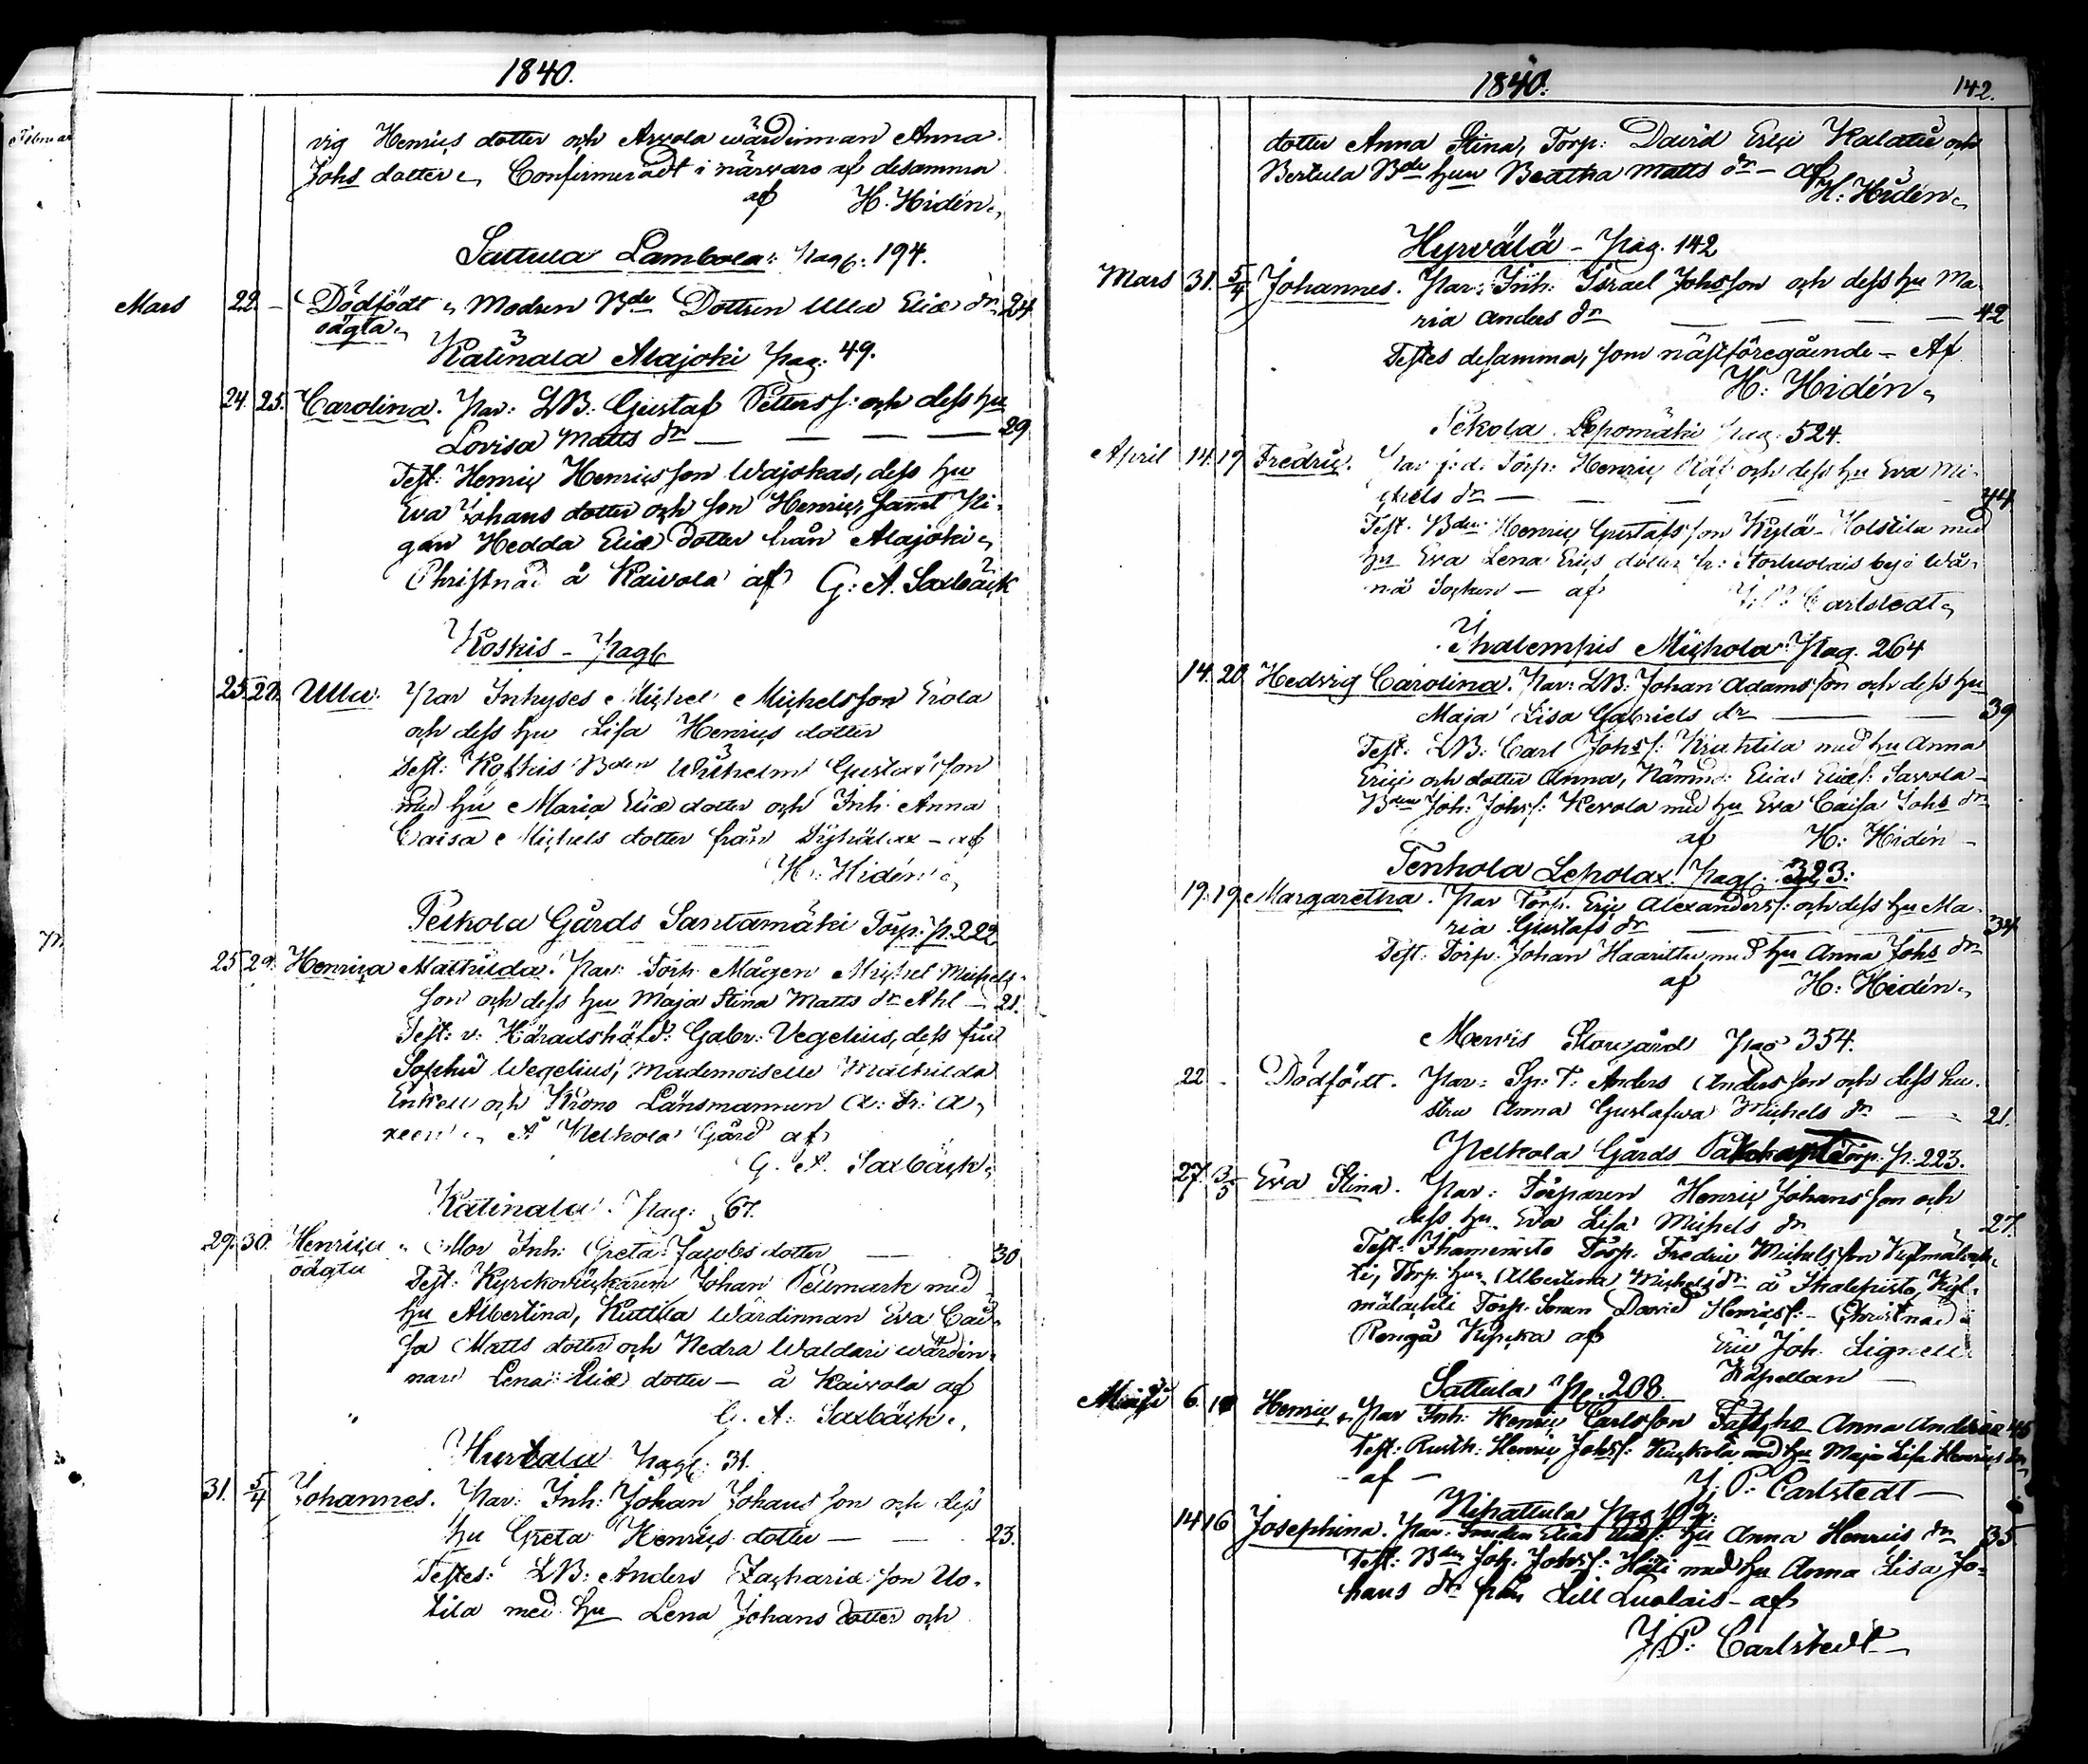 1840.
vig Henrics dotter och Arvola wärdinnan Anna
Johs dotter, Confirmeradt i närvaro af desamma
af H. Hidén,
Sattula Lambola: pag: 194.
Mars 22. - Dödfödt, Modren Bde Dottren Ulla Eliæ dr 24
oägta,
Katinala Alajoki pag. 49.
24. 25. Carolina. Par: LB: Gustaf Petterss: och dess hu
Lovisa Matts dr — — — — 29
Test: Henric Henricsson Wajokas, dess hu
Eva Johans dotter och son Henric, samt Pi-
gan Hedda Eliæ dotter från Alajoki,
Christnad å Kaivola af G: A. Saxbäck
Koskis - pag
25. Ulla. Par Inhyses Michel Michelsson Erola
och dess hu Lisa Henrics dotter
Test: Koskis Bden Wilhelm Gustafsson
med hu Maria Eliæ dotter och Inh: Anna
Caisa Michels dotter från - af
H: Hidén
Pelkola Gårds Santamäki Torp. p. 222
25 Henrica Mathilda. Par: Torp. Mågen Michel Michels-
son och dess hu Maja Stina Matts dr Ahl — 21.
Test: v. Häradshöfd: Gabr: Vegelius, dess fru
Sophie Wegelius, Mademoiselle Mathilda
Enkell och Krono Länsmannen
Å Pelkola Gård af
G. A. Saxbäck,
Katinala. Pag: 67.
29. 30. Henrica, Mor Inh: Greta Jacobs dotter — 30
oägta
Test: Kyrckoväcktaren Johan Pellmark med
hu Albertina, Kuttila Wärdinnan Eva Cai-
sa Matts dotter och Nedra Waldari wärdin-
nan Lena Eliæ dotter — å Kaivola af
G. A: Saxbäck,
Hurtala pag: 31.
31. 5/4 Johannes. Par: Inh: Johan Johansson och dess
hu Greta Henrics dotter — — 23.
Testes: LB: Anders Zachariæ son Uo-
tila med hu Lena Johans dotter och
1840. 142.
dotter Anna Stina, Torp: David Eric och
Bertula Bde hun Beatha Matts dr — af
H: Hidén,
Hyrvälä - pag. 142
Mars 31. 5/4 Johannes. Par: Inh: Israel Johsson och dess hu Ma-
ria Anders dr — — — — 42
Testes desamma, som nästföregående - Af
H: Hidén,
Pekola Lepomäki pag. 524.
April 14. 19 Fredric. Par j: d: Torp: Henric och dess hu Eva Mi-
chels dr — — — — 44
Test. Bden Henric Gustafsson Kylä-Holstila med
hu Eva Lena Erics dotter fr: Storluolais by i Wå-
nå Socken — af J: P: Carlstedt,
Ihalempis Mickola Pag. 264
14. 20 Hedvig Carolina. Par: LB: Johan Adamsson och dess hu
Maja Lisa Gabriels dr — — 39
Test: LB: Carl Johss: Krahtila med hu Anna
Erici och dotter Anna, Nämnd: Elias Eliæs: Savola
Bden Joh: Johss: Kevola med hu Eva Caisa Johs dr
af H: Hidén —
Tenhola Lepolax. pag: 323:
19. 19. Margaretha. Par Torp. Eric Alexanderss: och dess hu Ma-
ria Gustafs dr — — 34
Test: Torp: Johan med hu Anna Johs dr
af H: Hidén,
Mervis Storgård Pag 354.
22 - Dödfödt. Par: Sp: T: Anders Andersson och dess hu-
stru Anna Gustafwa Michels dr — 21.
Pelkola Gårds Torp. p. 223.
27. 3/5 Eva Stina. Par: Torparen Henric Johansson och
dess hu Eva Lisa Michels dr 27.
Test: Torp: Fredric Michelsson
Torp. hun Albertina Michels dr å
Torp. Sonen David Henricss: - Christnad i
Rengå Kyrcka af Eric Joh. Lignell
Kapellan —
Sattula Pg. 208.
6. Henric, Par Inh: Henric Carlsson hu Anna Anders 45
Test: Rusth: Henric Johss: med hu Maja Lisa Henrics dr
af — J: P: Carlstedt —
Nihattula pag 102.
14 16 Josephina. Par: Smeden Elias Eliæs: hu Anna Henrics dr 35
Test: Bden Joh: Johss: med hu Anna Lisa Jo-
hans dr från Lill Luolais - af
J: P: Carlstedt —